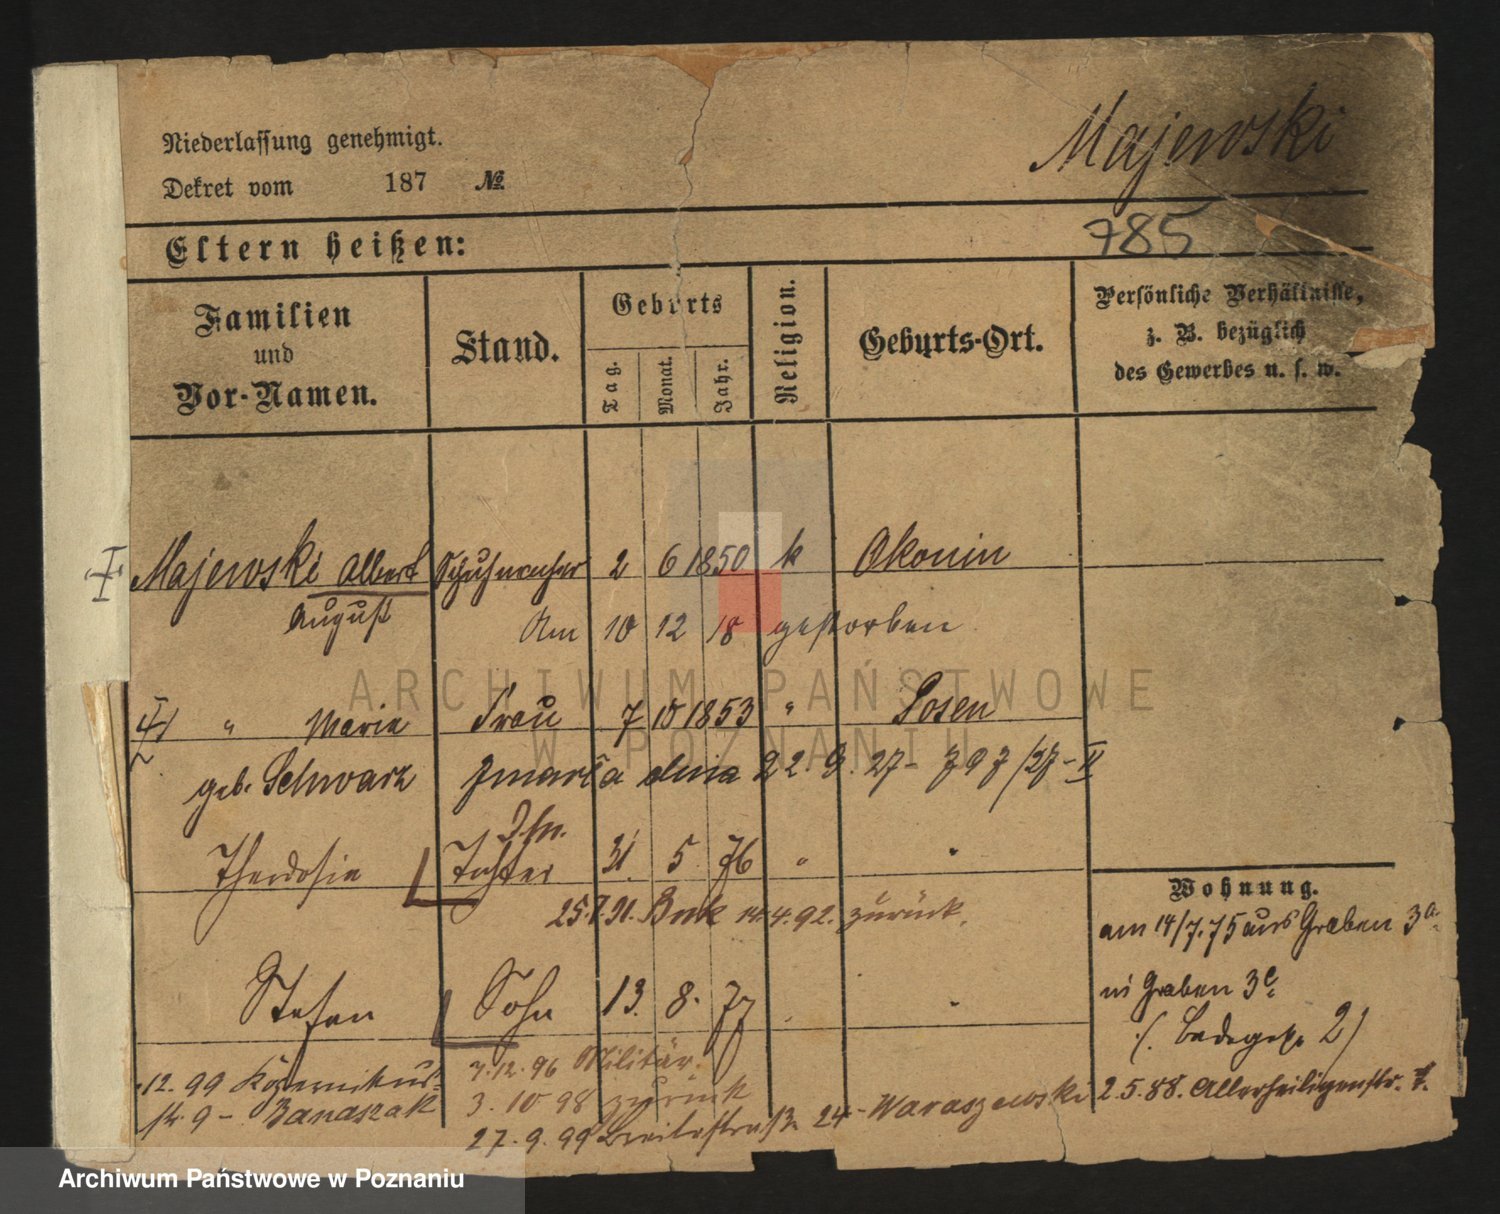 Niederlassung genehmigt.
Dekret vom 187 №
Majewski
785
Eltern heißen:
Familien
und
Vor-Namen.
Stand.
Geburts
Tag.
Monat.
Jahr.
Religion.
Geburts-Ort.
Persönliche Verhältnisse,
z. B. bezüglich
des Gewerbes u. s. w.
Majewski Albert Schuhmacher 2 6 1850 k Okonin
August Am 10 12 18 gestorben
" Marie Frau 7 10 1853 " Posen
geb. Schwarz zmarła dnia 22. 9. 27 - 797/27 - II
Theodosia Tochter 31. 5. 76 " "
25.7.91. Buk 14.4.92. zurück.
Stefan Sohn 13. 8. 77
7.12.96 Militär.
3. 10 98 zurück
27. 9. 99 Breitestraße 24 - Waraszewski
.12. 99
str. 9 - Banaszak
Wohnung.
am 14/7.75 aus Graben 3a.
in Graben 3c.
(. Badegasse 2)
2.5.88. Allerheiligenstr.
ARCHIWUM PAŃSTWOWE
W POZNANIU
Archiwum Państwowe w Poznaniu